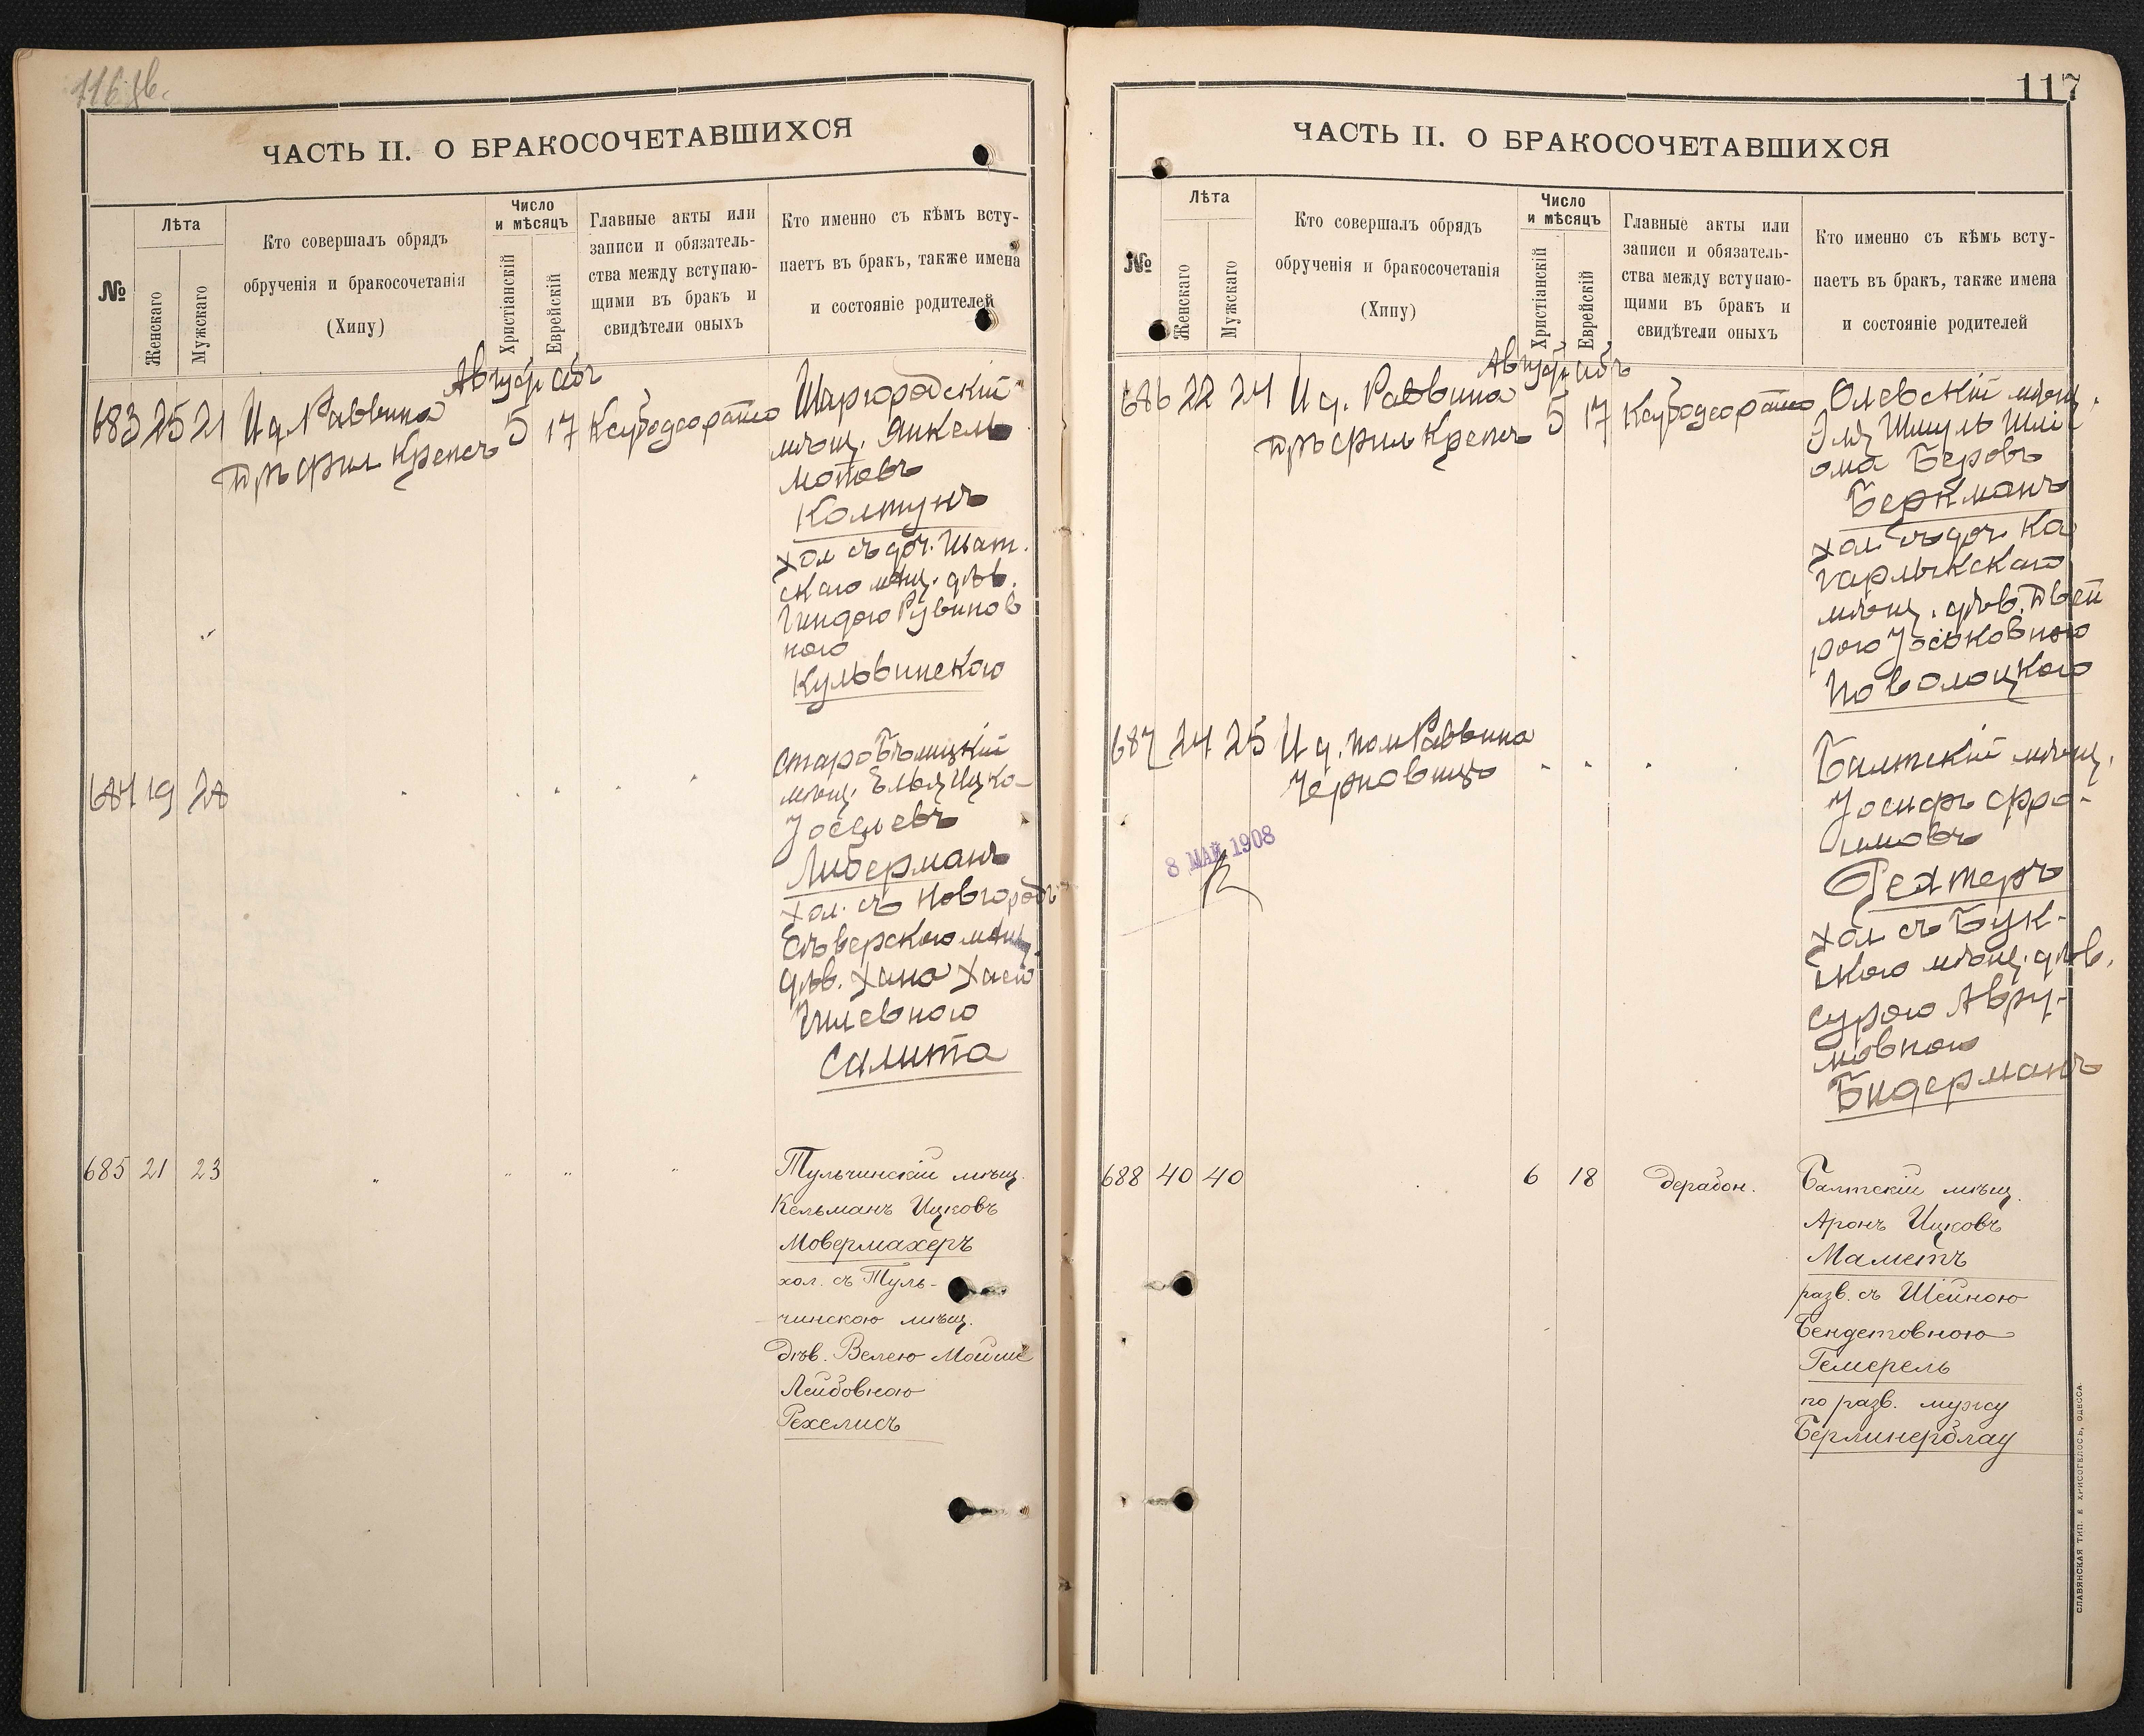 116 об.
ЧАСТЬ II. О БРАКОСОЧЕТАВШИХСЯ
№
Лѣта
Женскаго
Мужскаго
Кто совершалъ обрядъ
обрученія и бракосочетанія
(Хипу)
Число
и мѣсяцъ
Христіанскій
Еврейскій
Главные акты или
записи и обязатель-
ства между вступаю-
щими въ бракъ и
свидѣтели оныхъ
Кто именно съ кѣмъ всту-
паетъ въ бракъ, также имена
и состояніе родителей
Август Абъ
683 25 21 И д. Раввина
Крепсъ 5 17
Шаргородскій
мѣщ. Янкель
Мотевъ
Колтунъ
хол съ доч. Шат.
скаго мѣщ. дѣв.
Гиндою Рувинов
ною
Кульвинскою
684 19 28
Старобѣлицкій
мѣщ. Ельи Ицко-
Іоселевъ
Либерманъ
хол. съ Новгородъ
Сѣверскою мѣщ.
дѣв. Хана Хаею
Гилевною
Салита
685 21 23 " " " "
Тульчинскій мѣщ.
Кельманъ Ицковъ
Мовермахеръ
хол. съ Туль-
чинскою мѣщ.
дѣв. Велею Мойше
Лейбовною
Рехелисъ
117
ЧАСТЬ II. О БРАКОСОЧЕТАВШИХСЯ
№
Лѣта
Женскаго
Мужскаго
Кто совершалъ обрядъ
обрученія и бракосочетанія
(Хипу)
Число
и мѣсяцъ
Христіанскій
Еврейскій
Главные акты или
записи и обязатель-
ства между вступаю-
щими въ бракъ и
свидѣтели оныхъ
Кто именно съ кѣмъ всту-
паетъ въ бракъ, также имена
и состояніе родителей
Август Абъ
686 22 24 И д. Раввина
Крепсъ 5 17
Олевскій мѣщ.
Шмуль Шлі
ома Беровъ
Беркманъ
хол съ доч. Ка
гарлыкскаго
мѣщ. дѣв. Двей
рою Іоськовною
Новолоцкою
687 24 25 И д. пом Раввина
Черновицъ
8 МАЙ 1908
Балтскій мѣщ.
Іосифъ Фро-
имовъ
Фехтеръ
хол съ Бук-
скою мѣщ. дѣв.
Сурою Авру-
мовною
Бидерманъ
688 40 40 6 18 дерабон.
Балтскій мѣщ.
Аронъ Ицковъ
Маметъ
разв. съ Шейною
Бендетовною
Гемерель
по разв. мужу
Берлинерблау
СЛАВЯНСКАЯ ТИП. Е ХРИСОГЕЛОСЪ, ОДЕССА.